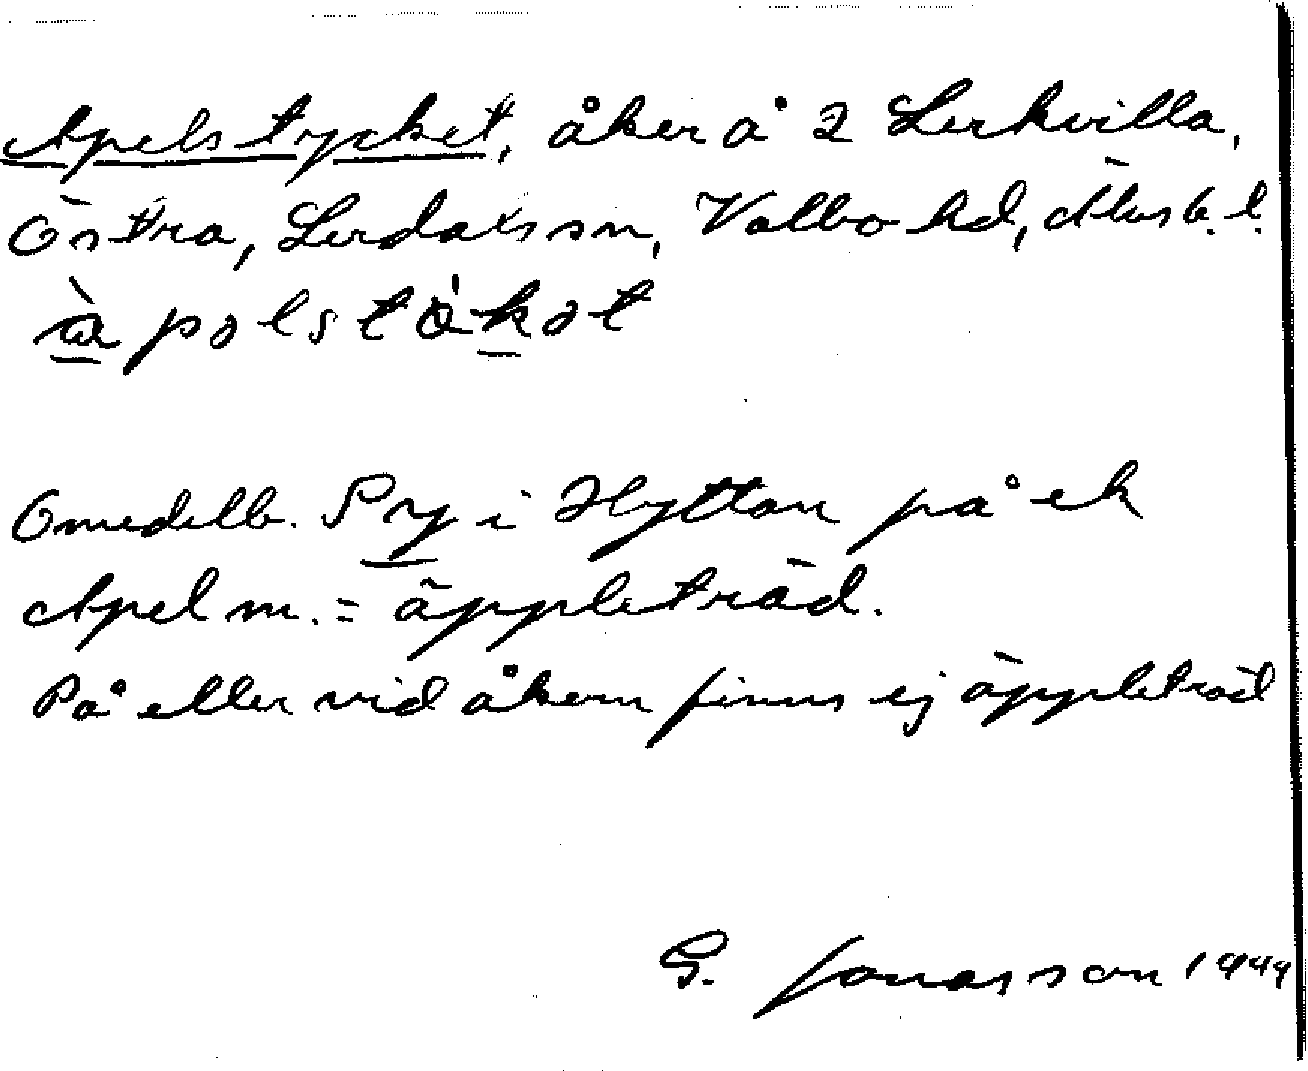 Apelstycket, åker å 2 Lerkvilla,
Östra, Lerdals sn, Valbo hd, Älvsb. l.
àpəlstö̀kət
Omedelb. Py i Hyttan på ek
Apel m. = äppleträd.
På eller vid åkern finns ej äppleträd
G. Jonasson 1949